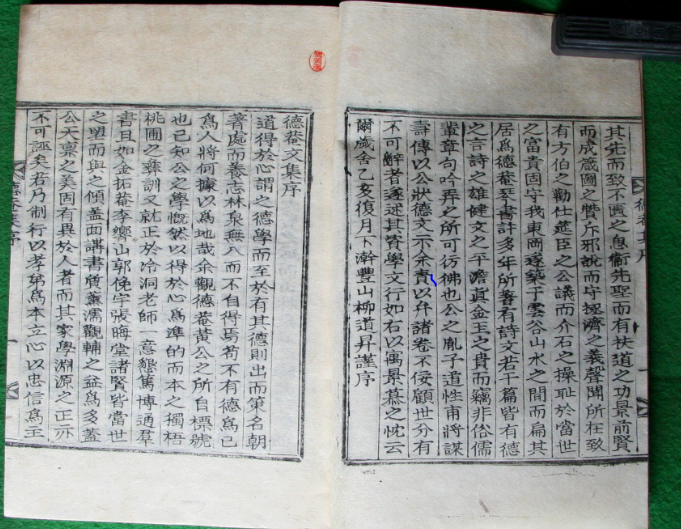 其先而致不匱之息衛先聖而有扶道之功景前賢
而成箴圖之贊斥邪說而守極濟之義聲聞所在致
有方伯之勸仕進臣之公議而介石之操恥於當世
之富貴固守我東岡遂築于雲谷山水之間而扁其
居爲德菴琴書許多年所著有詩文若干篇皆有德
之言詩之雄健文之平澹眞金玉之貴而竊非俗儒
輩章句吟弄之所可彷彿也公之胤子道性甫將謀
壽傳以公狀德文示余責以弁諸卷不佞顧世分有
不可辭者遂述其資學文行如右以寓景慕之忱云
爾歲舍乙亥復月下澣豐山柳道昇謹序
德菴文集序
道得於心謂之德學而至於有其德則出而策名朝
著處而養志林泉無入而不自得焉苟不有德爲己
爲人將何據以爲地哉余觀德菴黃公之所自標號
也已知公之學慨然以得於心爲準的而本之獨梧
桃圃之彝訓又就正於冷洞老師一意懇篤博通群
書且如金拓菴李響山郭俛宇張晦堂諸賢皆當世
之望而與之傾蓋面講書廣薰濡觀輔之益爲多蓋
公天稟之美固有異於人者而其家學淵源之正亦
不可誣矣若乃制行以孝弟爲本立心以忠信爲主